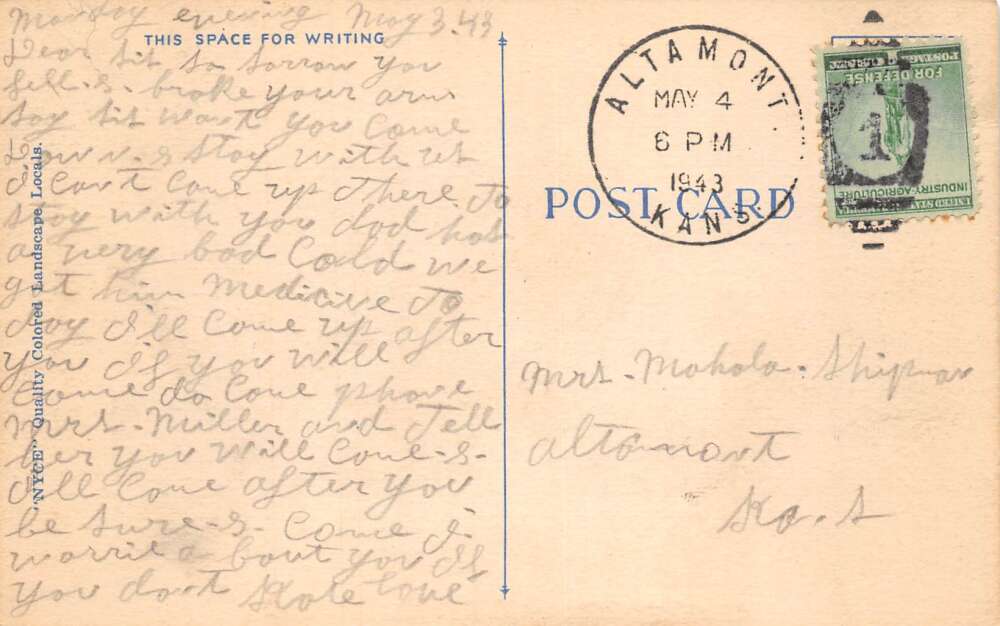 Monday evening May 3.43
THIS SPACE FOR WRITING
Dear Sit So Sorrow you
fell-s- broke your arm
say Sit want you Come
Down-s stay with us
I Can't Come up there to
stay with you dad has
a very bad Cold we
got him Medicine To
day I'll Come up after
you If you will
Come do Come phone
Mrs. Miller and Tell
her you will Come-s-
I'll Come after you
be Sure-s- Come I
worrie a bout you If
you don't love
"NYCE" Quality Colored Landscape Locals.
ALTAMONT
MAY 4
6 PM
1943
KANS.
POSTAGE
FOR DEFENSE
1
INDUSTRY-AGRICULTURE
UNITED STATES
POST CARD
Mrs. Mahala Shipman
Altamont
Ka.s